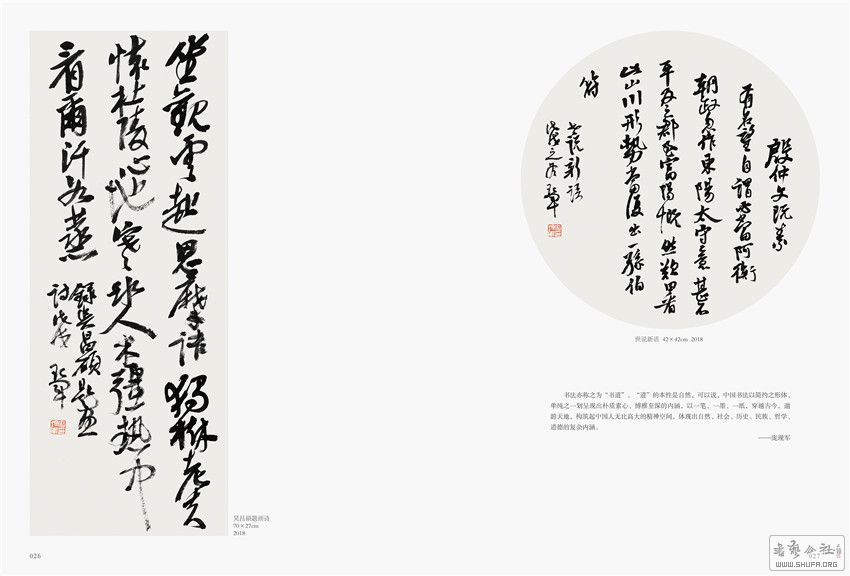 坐觀雲起思摩詰獨樹老夫
懷杜陵心地寒冰人木強熱中
看爾汗如蒸
錄吳昌碩題畫
詩戊戌 現軍
吴昌硕题画诗
70×27cm
2018
026
殷仲文既素
有名望自謂必當阿衡
朝政忽作東陽太守意甚不
平及之郡至富陽慨然歎曰看
此山川形勢當復出一孫伯
符
世說新語
戊戌之 現軍
世说新语 42×42cm 2018
书法亦称之为“书道”。“道”的本性是自然。可以说,中国书法以简约之形体、
单纯之一划呈现出朴质素心、博雅至深的内涵,以一笔、一墨、一纸,穿越古今,遨
游天地,构筑起中国人无比高大的精神空间,体现出自然、社会、历史、民族、哲学、
道德的复杂内涵。
——庞现军
027
WWW.SHUFA.ORG